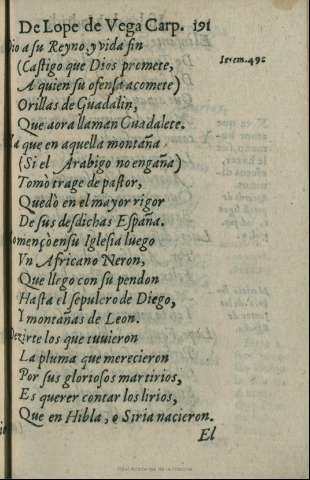 De Lope de Vega Carp. 191
Dio a su Reyno, y vida fin
(Castigo que Dios promete,
Ierem. 49.
A quien su ofensa acomete)
Orillas de Guadalin,
Que aora llaman Guadalete.
que en aquella montaña
(Si el Arabigo no engaña)
Tomò trage de pastor,
Quedò en el mayor rigor
De sus desdichas España.
Començò en su Iglesia luego
Vn Africano Neron,
Que llego con su pendon
Hasta el sepulcro de Diego,
Y montañas de Leon.
Dezirte los que tuuieron
La pluma que merecieron
Por sus gloriosos martirios,
Es querer contar los lirios,
Que en Hibla, o Siria nacieron.
El